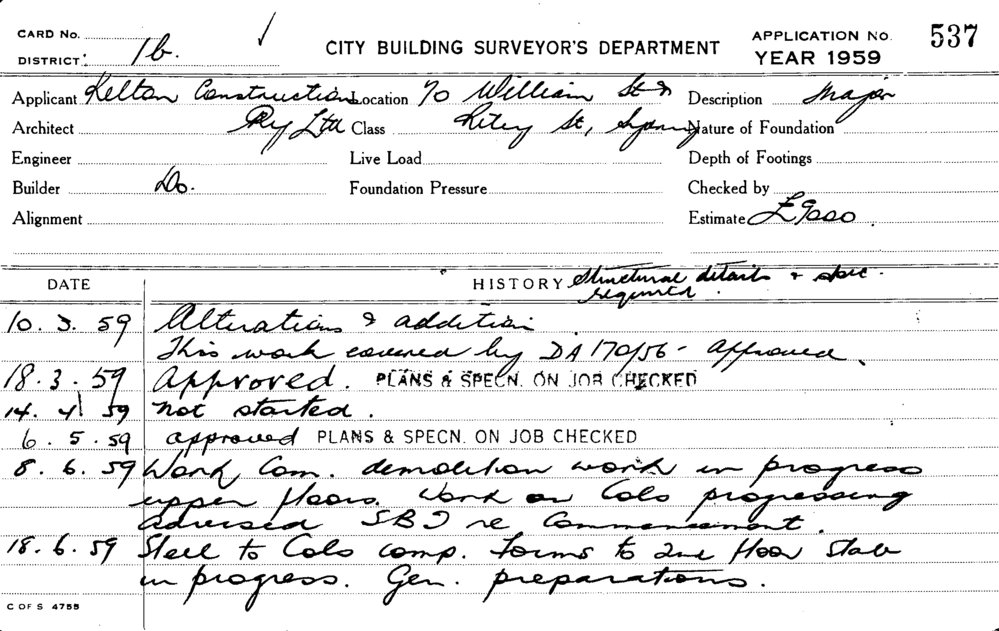 CARD No.
DISTRICT: 1b.
CITY BUILDING SURVEYOR'S DEPARTMENT
APPLICATION No. 537
YEAR 1959
Applicant Kelton Constructions Location 70 William St & Description Major
Architect Pty Ltd Class Riley St, Sydney Nature of Foundation
Engineer Live Load Depth of Footings
Builder Do. Foundation Pressure Checked by
Alignment Estimate £9000
DATE HISTORY Structural details + spec.
required.
10. 3. 59 Alterations & addition
This work covered by DA 170/56 - approved.
18. 3. 59 Approved. PLANS & SPECN. ON JOB CHECKED
14. 4 59 not started.
6. 5. 59 approved PLANS & SPECN. ON JOB CHECKED
8. 6. 59 Work Com. demolition work in progress
upper floors. work on Cols progressing
advised SBI re Commencement.
18. 6. 59 Steel to Cols comp. Forms to 2nd floor slab
in progress. Gen. preparations.
C OF S 4755